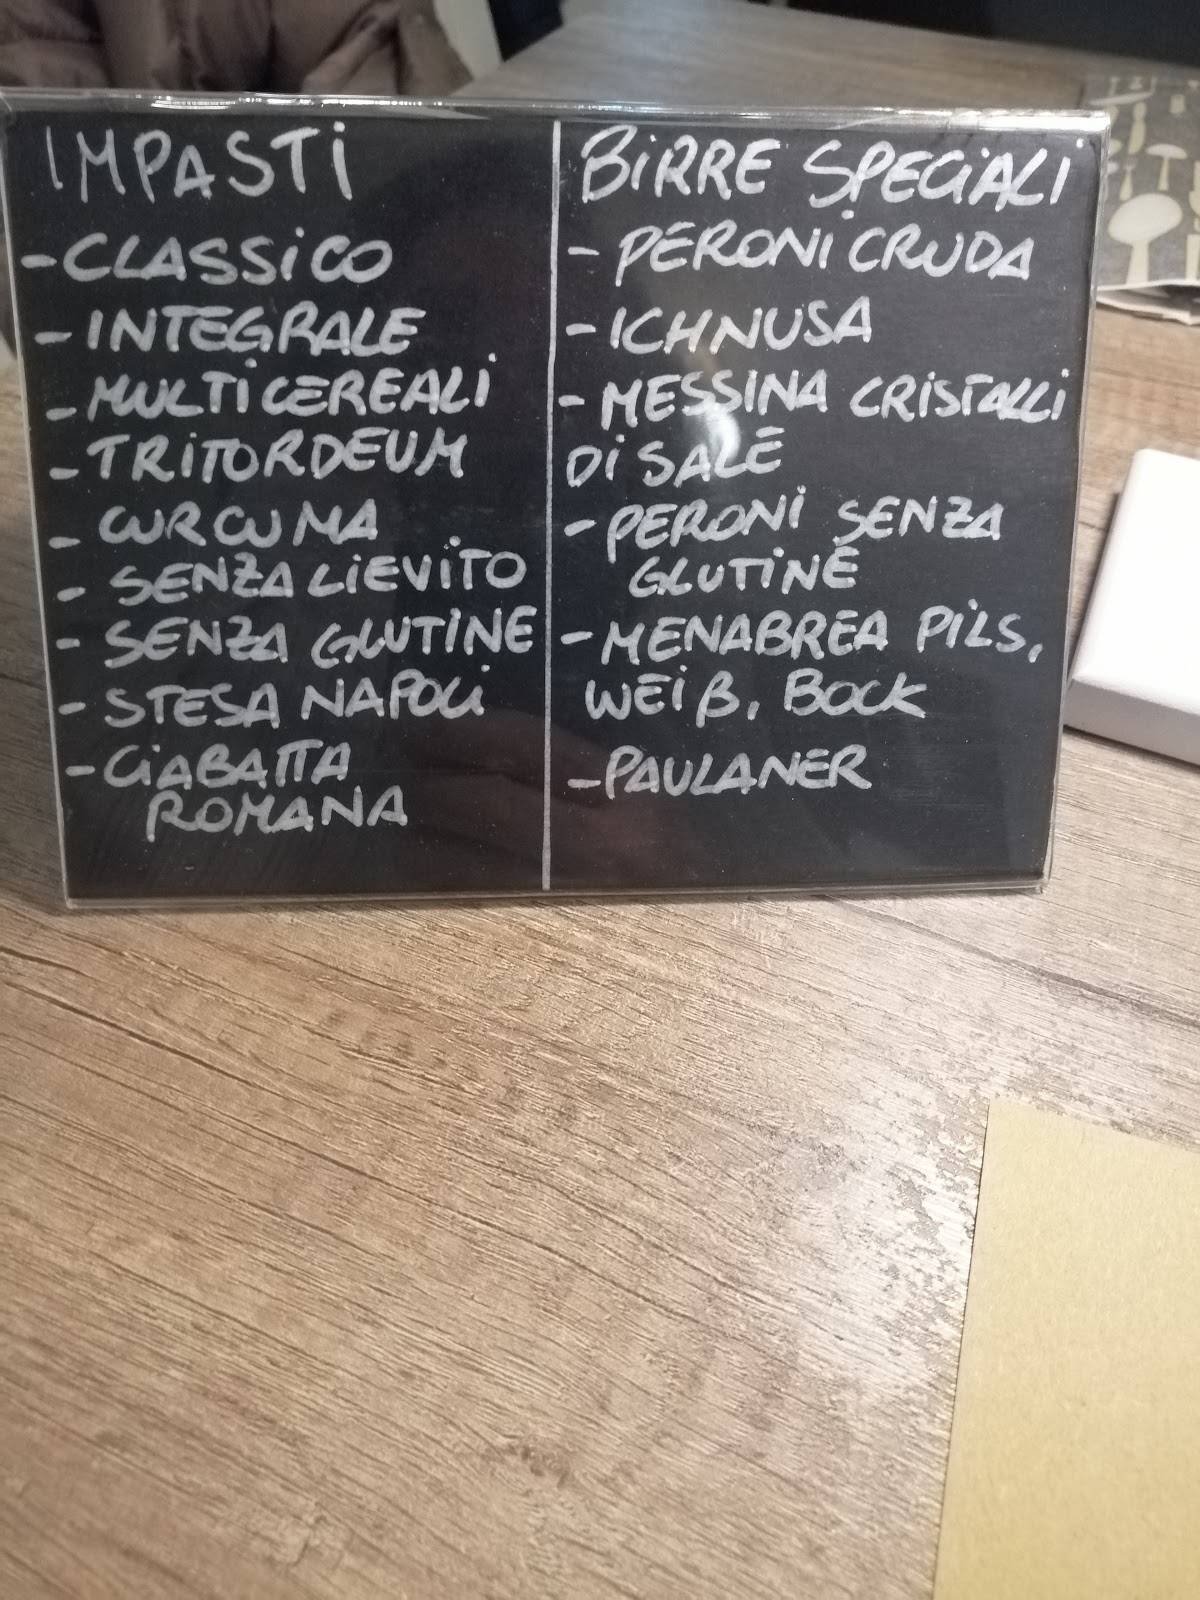 IMPASTI
- CLASSICO
- INTEGRALE
- MULTICEREALI
- TRITORDEUM
- CURCUMA
- SENZA LIEVITO
- SENZA GLUTINE
- STESA NAPOLI
- CIABATTA
ROMANA
BIRRE SPECIALI
- PERONI CRUDA
- ICHNUSA
- MESSINA CRISTALLI
DI SALE
- PERONI SENZA
GLUTINE
- MENABREA PILS,
WEIß, BOCK
- PAULANER